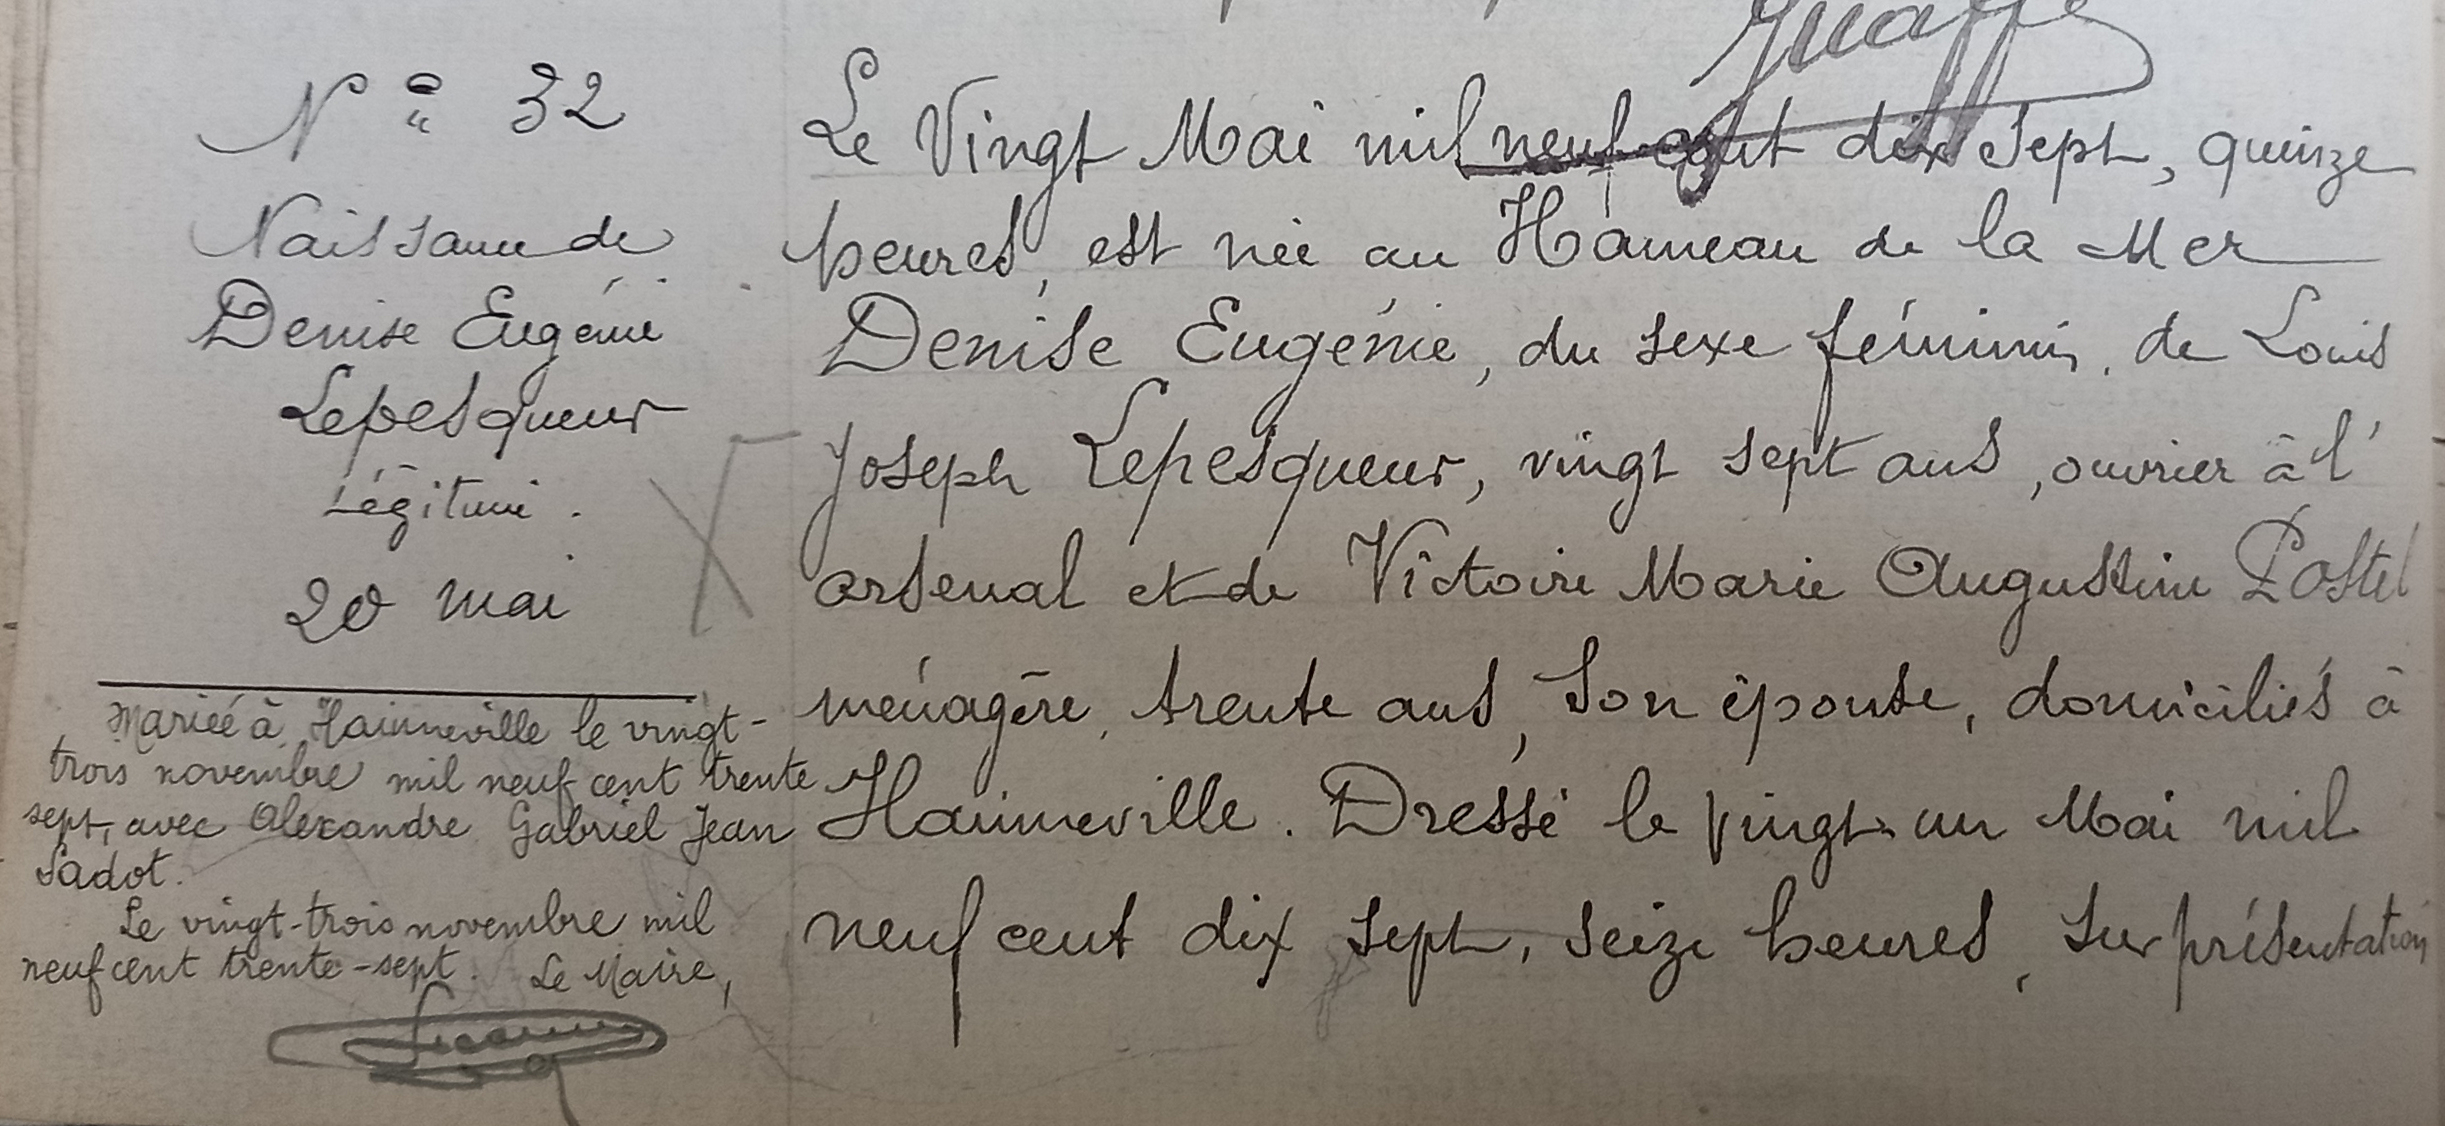 N° 32
Naissance de
Denise Eugénie
Lepesqueur
Légitime.
20 mai
Mariée à Hainneville le vingt-
trois novembre mil neuf cent trente
sept, avec Alexandre Gabriel Jean
Sadot.
Le vingt-trois novembre mil
neuf cent trente-sept. Le Maire,
Le Vingt Mai mil neuf cent dix sept, quinze
heures, est née au Hameau de la Mer
Denise Eugénie, du sexe féminin, de Louis
Joseph Lepesqueur, vingt sept ans, ouvrier à l'
arsenal et de Victoire Marie Augustine Postel
ménagère, trente ans, son épouse, domiciliés à
Hainneville. Dressé le vingt un Mai mil
neuf cent dix sept, seize heures, sur présentation